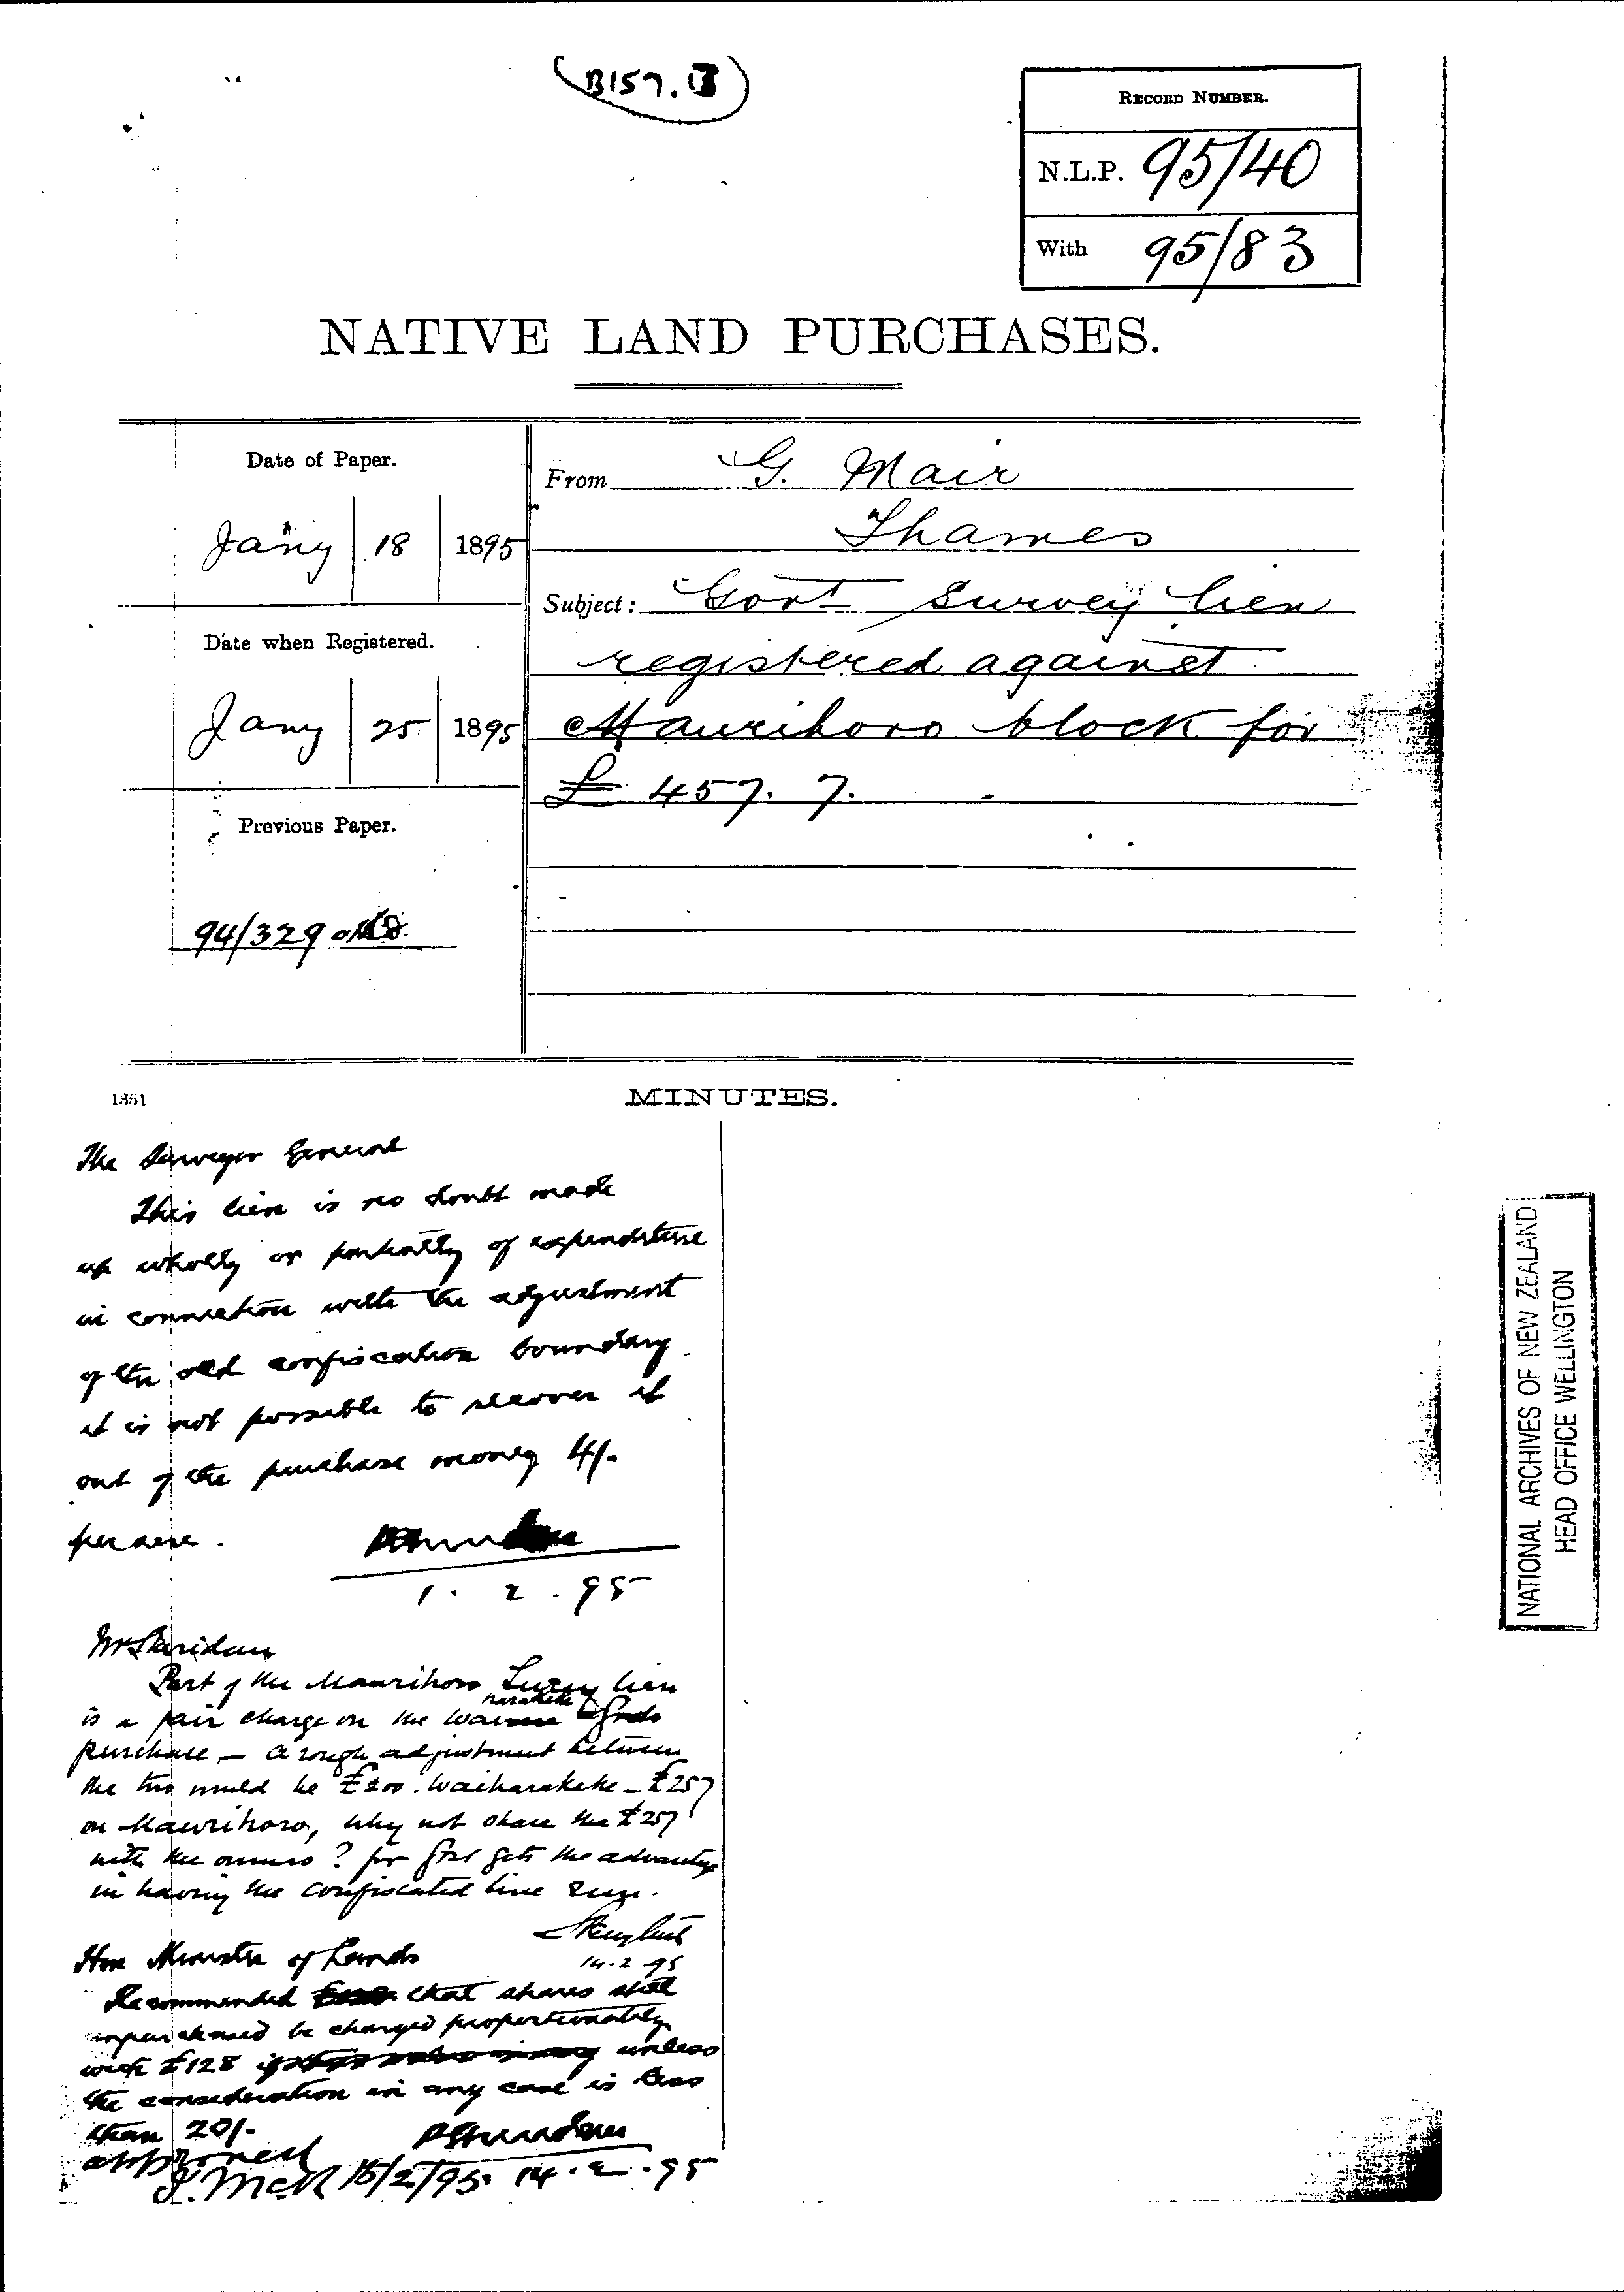 (B157.B)
RECORD NUMBER.
N.L.P. 95/40
With 95/83
NATIVE LAND PURCHASES.
Date of Paper.
Jany 18 1895
Date when Registered.
Jany 25 1895
Previous Paper.
94/329
From G. Mair
Thames
Subject: Govt Survey lien
registered against
Maurihoro block for
£457. 7.
1351
MINUTES.
The Surveyor General
This lien is no doubt made
up wholly or partially of expenditure
in connection with the adjustment
of the old confiscation boundary
it is not possible to recover it
out of the purchase money 4/-
per acre.
1. 2. 95
Mr Sheridan
Part of the Maurihoro Survey lien
is a fair charge on the Waiharakeke
purchase — A rough adjustment between
the two would be £200. Waiharakeke — £257
on Maurihoro, Why not share the £257
with the owners? for Govt gets the advantage
in having the confiscated line run.
14.2.95
Hon Minister of Lands
Recommended that shares still
unpurchased be charged proportionately
with £128 unless
the consideration in any case is less
than 20/-
PSheridan
14.2.95
approved
J. McK 15/2/95.
NATIONAL ARCHIVES OF NEW ZEALAND
HEAD OFFICE WELLINGTON